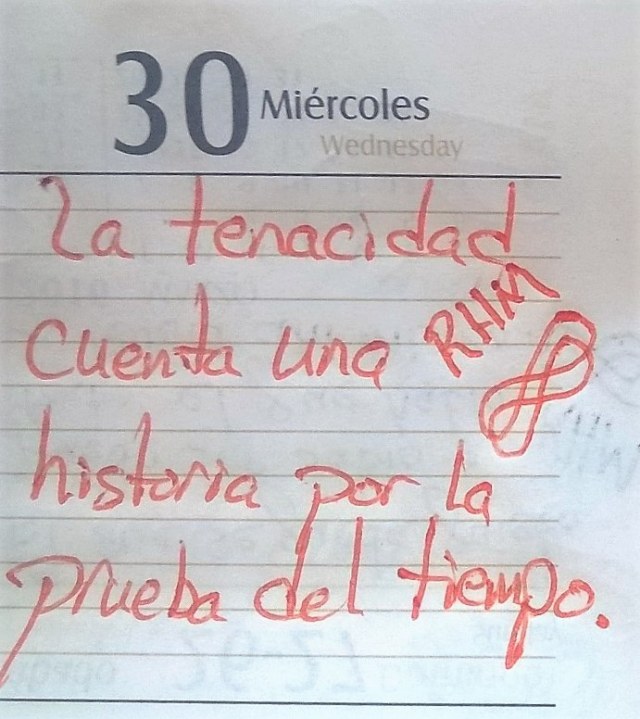 30 Miércoles
Wednesday
La tenacidad
cuenta una RHM
historia por la
prueba del tiempo.